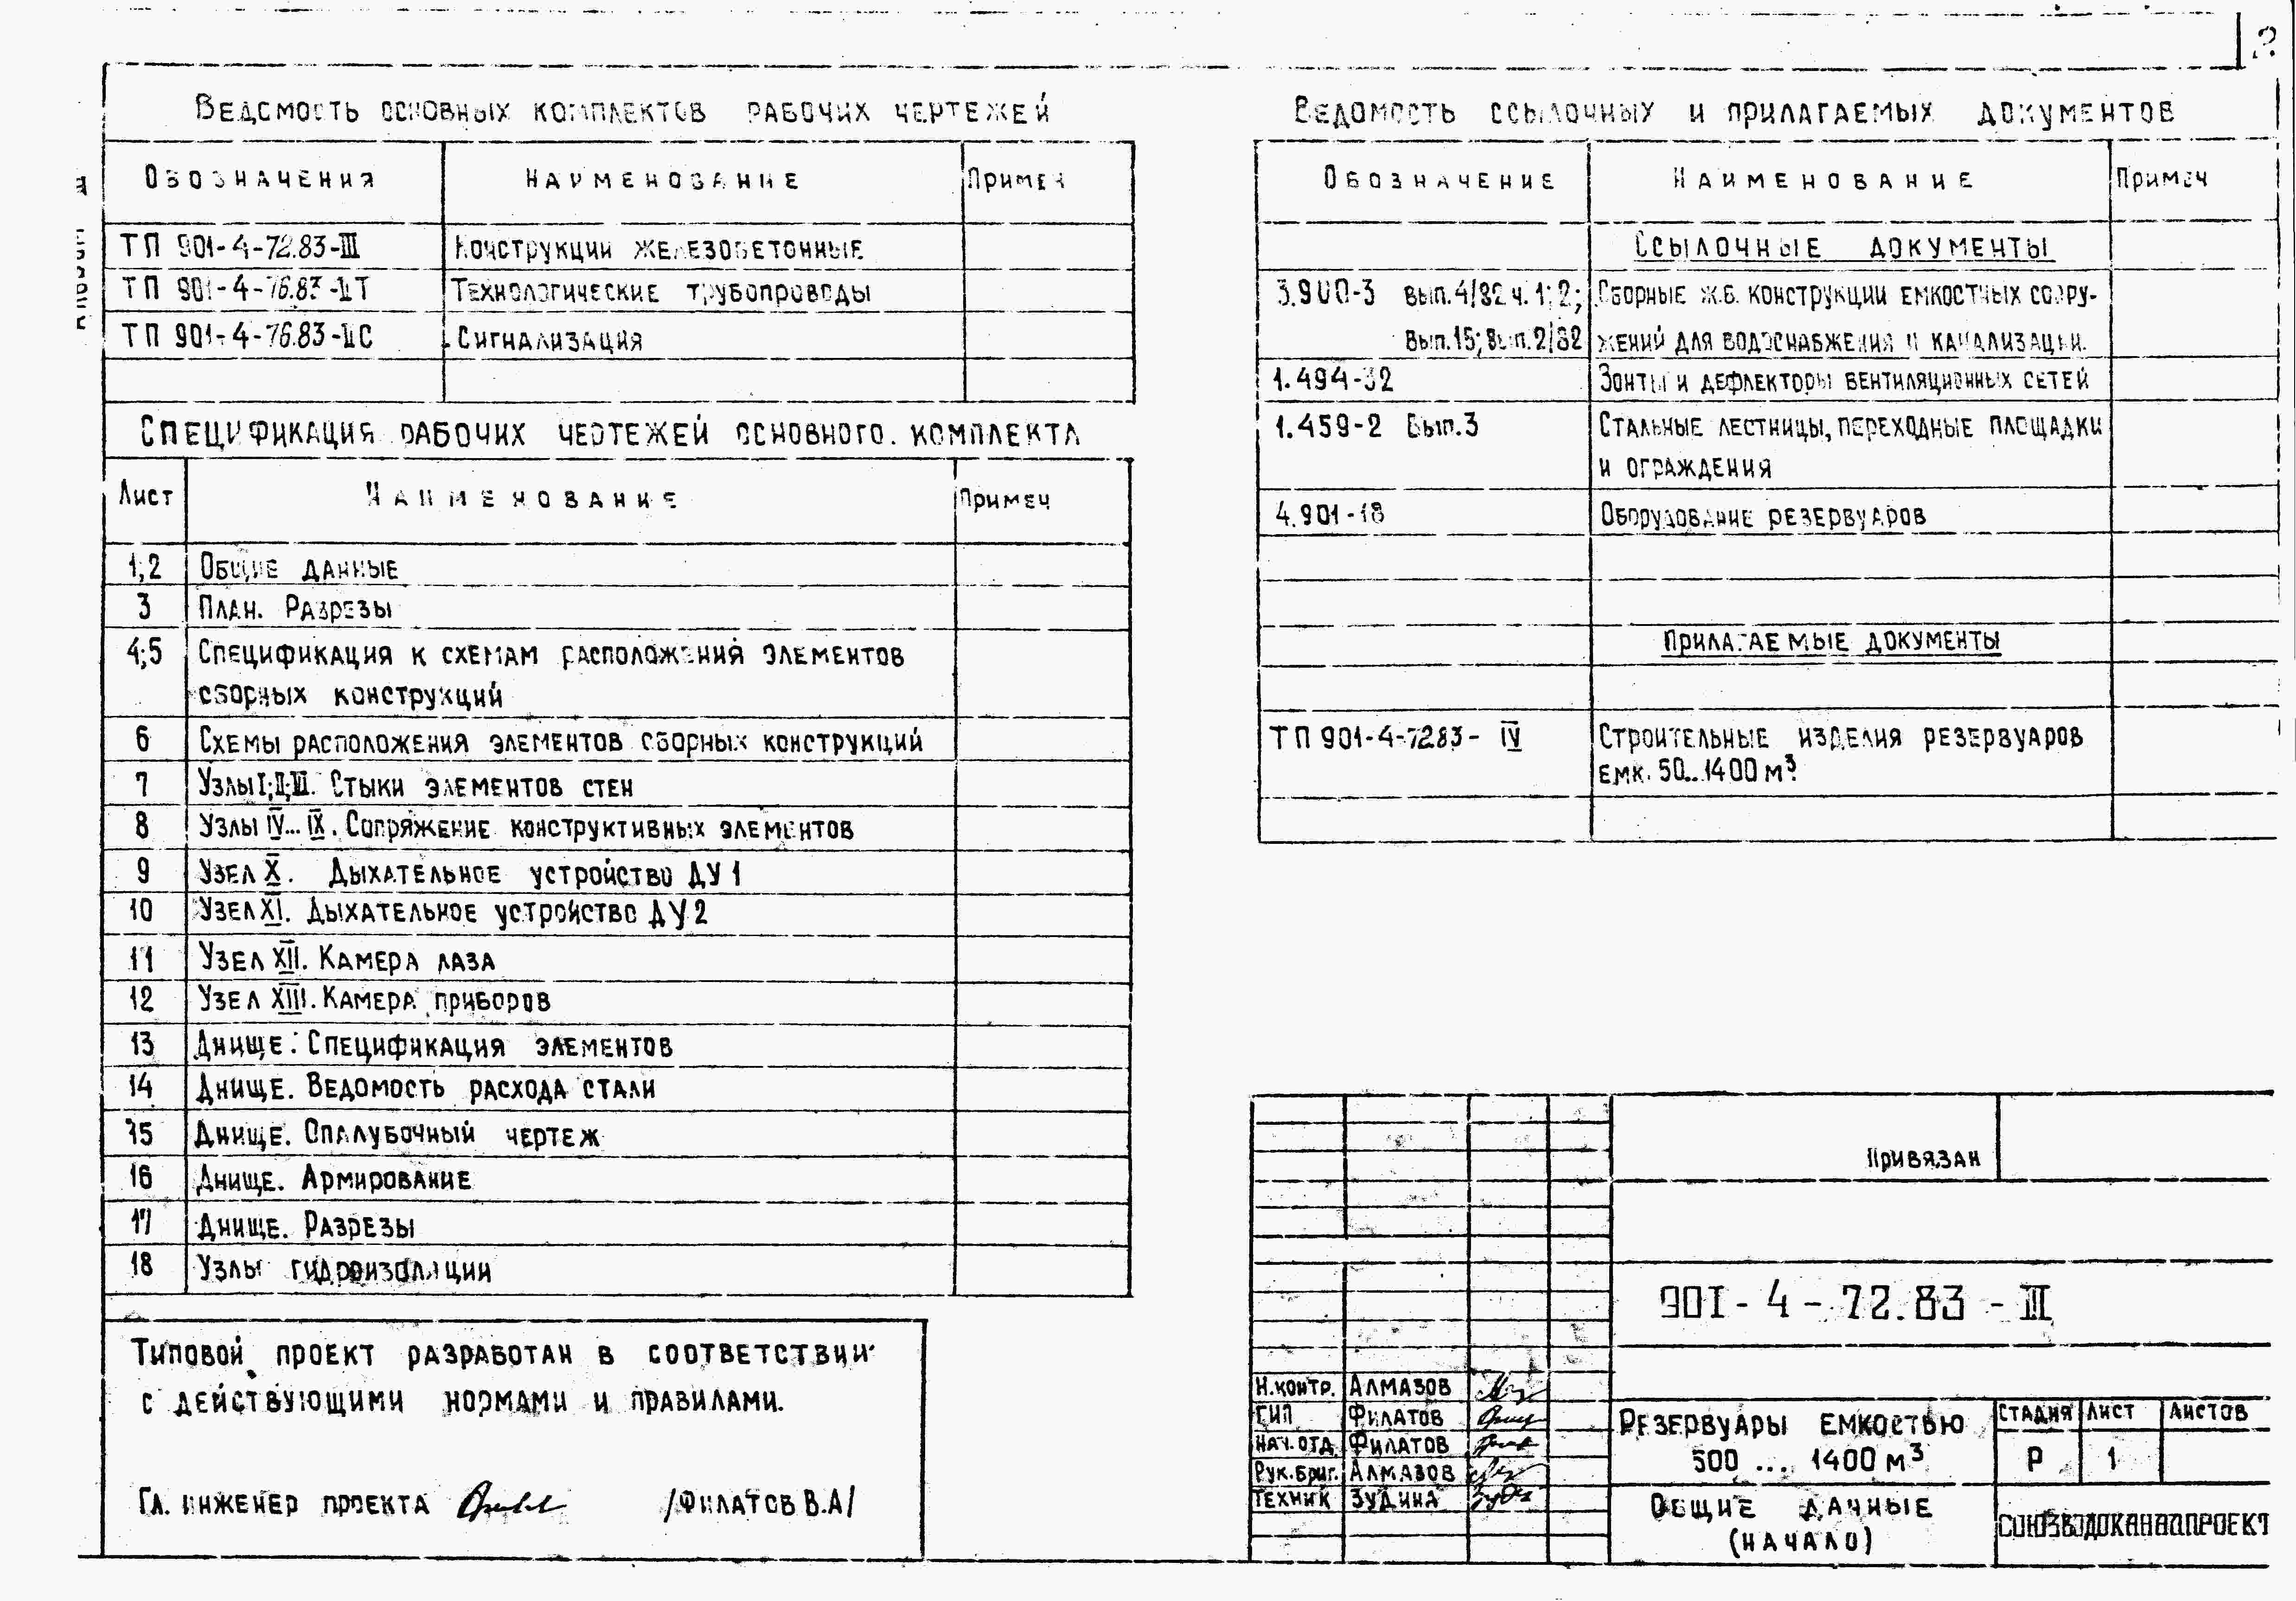 2
Ведомость основных комплектов рабочих чертежей
Обозначения Наименование Примеч
ТП 901-4-72.83-III Конструкции железобетонные
ТП 901-4-76.83-II Т Технологические трубопроводы
ТП 901-4-76.83-II С Сигнализация
Спецификация рабочих чертежей основного комплекта
Лист Наименование Примеч
1;2 Общие данные
3 План. Разрезы
4;5 Спецификация к схемам расположения элементов
сборных конструкций
6 Схемы расположения элементов сборных конструкций
7 Узлы I; II; III. Стыки элементов стен
8 Узлы IV... IX. Сопряжение конструктивных элементов
9 Узел X. Дыхательное устройство ДУ 1
10 Узел XI. Дыхательное устройство ДУ 2
11 Узел XII. Камера лаза
12 Узел XIII. Камера приборов
13 Днище. Спецификация элементов
14 Днище. Ведомость расхода стали
15 Днище. Опалубочный чертеж
16 Днище. Армирование
17 Днище. Разрезы
18 Узлы гидроизоляции
Типовой проект разработан в соответствии
с действующими нормами и правилами.
Гл. инженер проекта /Филатов В.А/
Ведомость ссылочных и прилагаемых документов
Обозначение Наименование Примеч
Ссылочные документы
3.900-3 вып.4/82 ч.1;2; Сборные ж.б. конструкции емкостных соору-
вып.15; вып.2/82 жений для водоснабжения и канализации.
1.494-32 Зонты и дефлекторы вентиляционных сетей
1.459-2 Вып.3 Стальные лестницы, переходные площадки
и ограждения
4.901-18 Оборудование резервуаров
Прилагаемые документы
ТП 901-4-72.83- IV Строительные изделия резервуаров
емк. 50...1400 м³.
Привязан
901-4-72.83-III
Н.контр. Алмазов
ГИП Филатов
Нач.отд. Филатов
Рук.бриг. Алмазов
Техник Зудина
Резервуары емкостью
500 ... 1400 м³
Стадия Лист Листов
Р 1
Общие данные
(начало)
СОЮЗВОДОКАНАЛПРОЕКТ